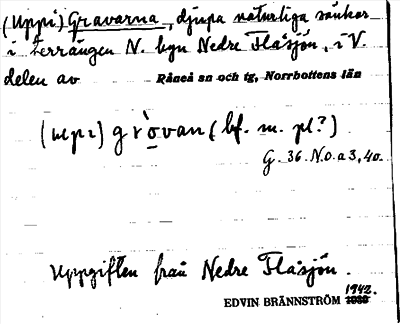 (Uppi) Gravarna, djupa naturliga sänkor
i terrängen N. byn Nedre Flåsjön, i V.
delen av Råneå sn och tg, Norrbottens län
(uppi) gròvan (bf. m. pl.?)
G. 36. N.o.a 3, 40.
Uppgiften från Nedre Flåsjön.
1942.
EDVIN BRÄNNSTRÖM 1939